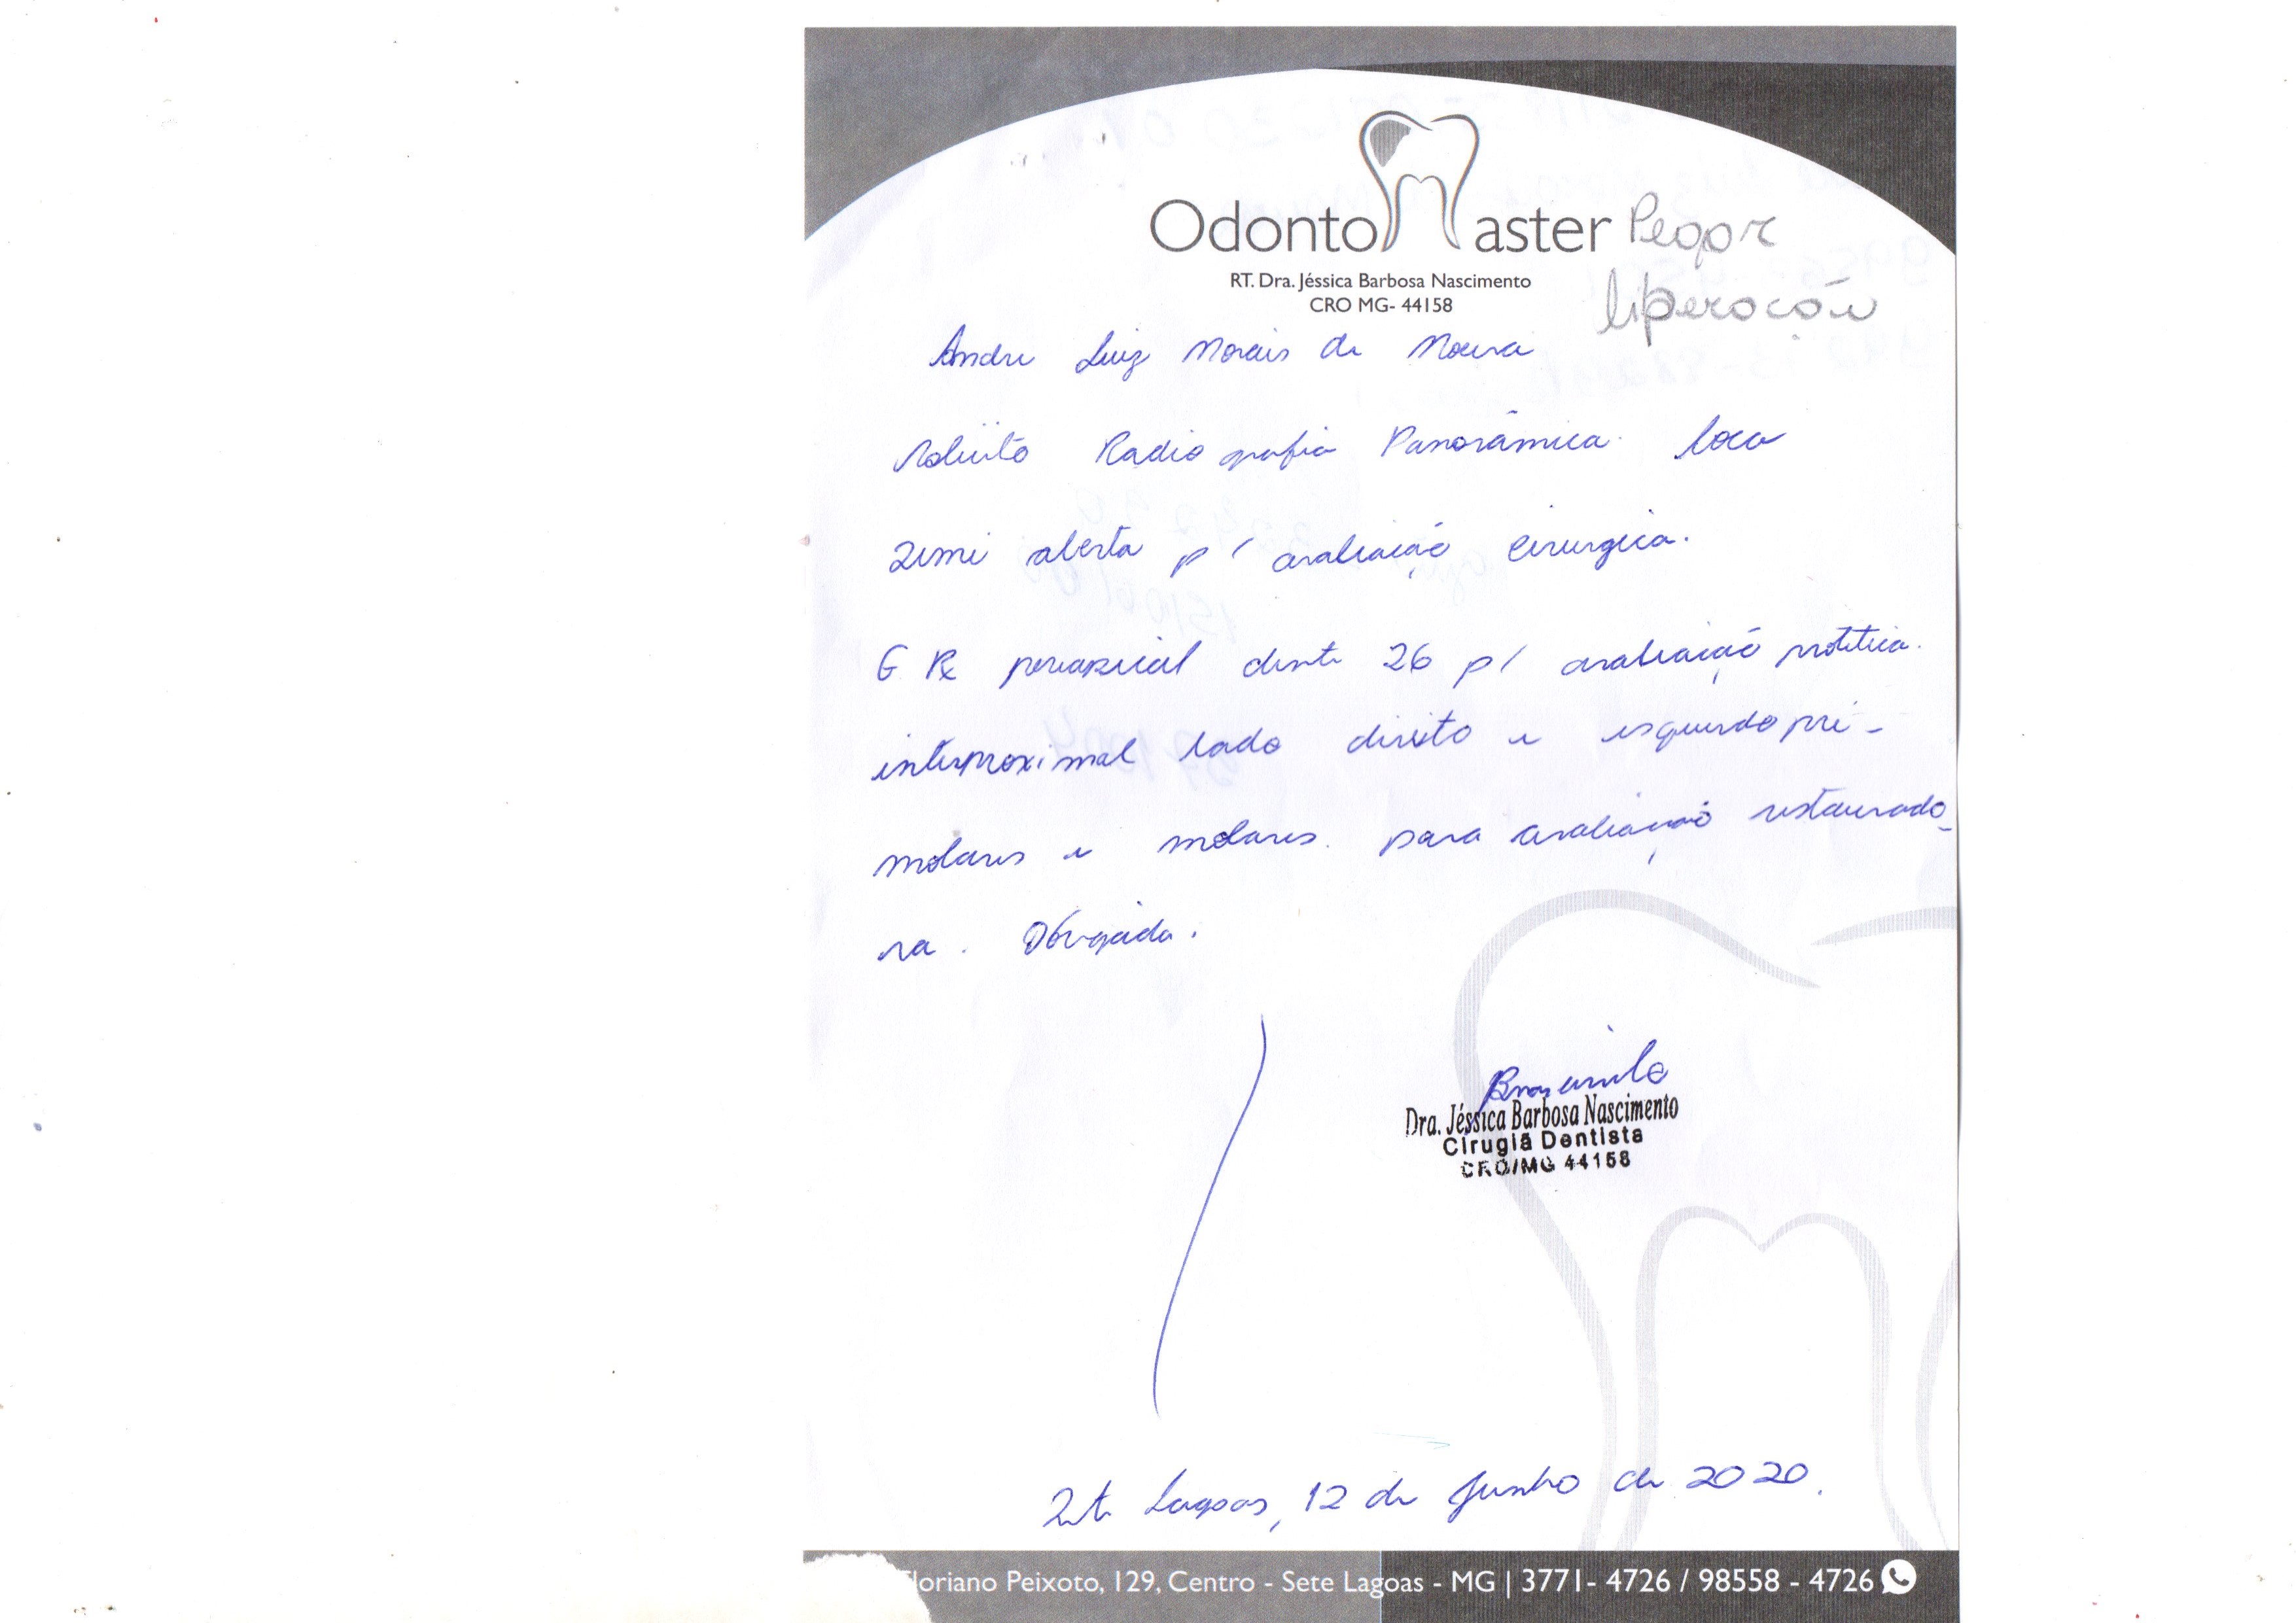 OdontoMaster
Pegar
liperacão
RT. Dra. Jéssica Barbosa Nascimento
CRO MG- 44158
Andre Luiz Morais de Moura
Solicito Radiografia Panorâmica. boca
semi aberta p/ avaliação cirurgica.
E RX periapical dente 26 p/ avaliação protetica.
interproximal lado direito e esquerdo pré-
molares e molares. para avaliação restaurado-
ra. Obrigada.
Dra. Jéssica Barbosa Nascimento
Cirugiã Dentista
CRO/MG 44158
Sete Lagoas, 12 de Junho de 2020.
Floriano Peixoto, 129, Centro - Sete Lagoas - MG | 3771- 4726 / 98558 - 4726